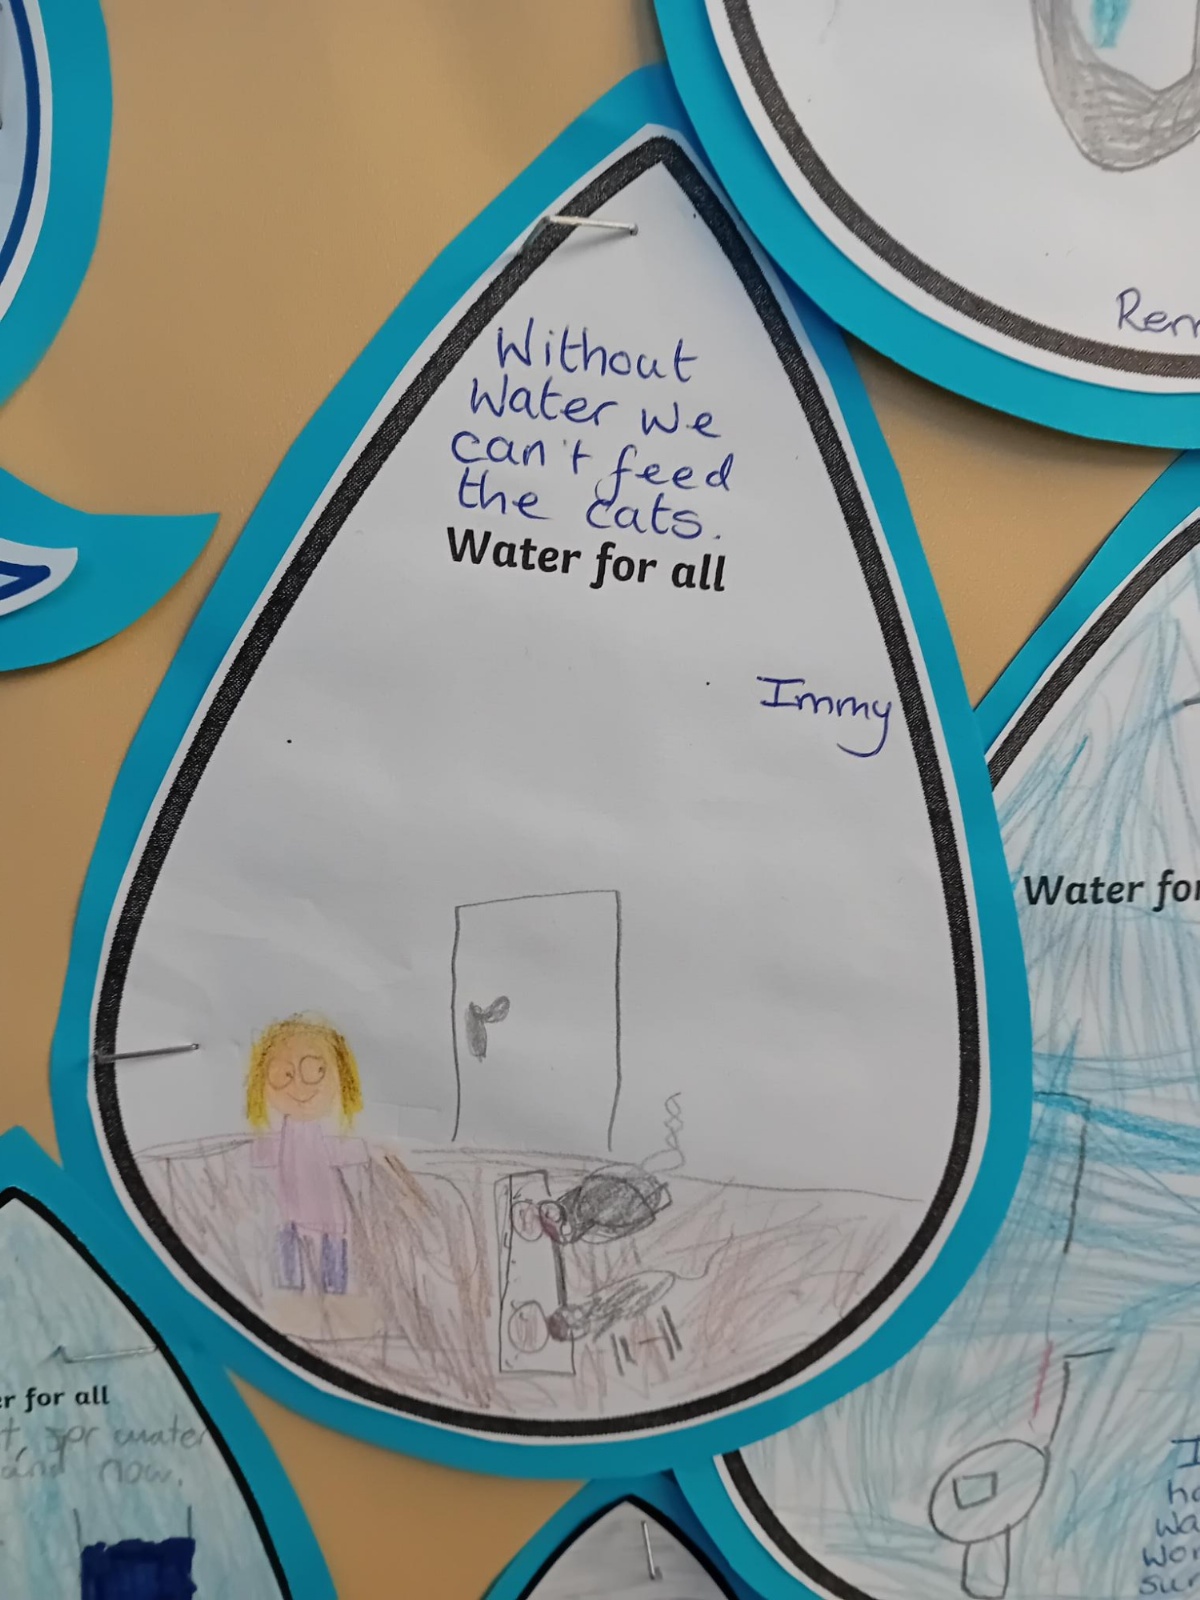 Without
Water we
can't feed
the cats.
Water for all
Immy
Water for
for all
water
and now.
wa